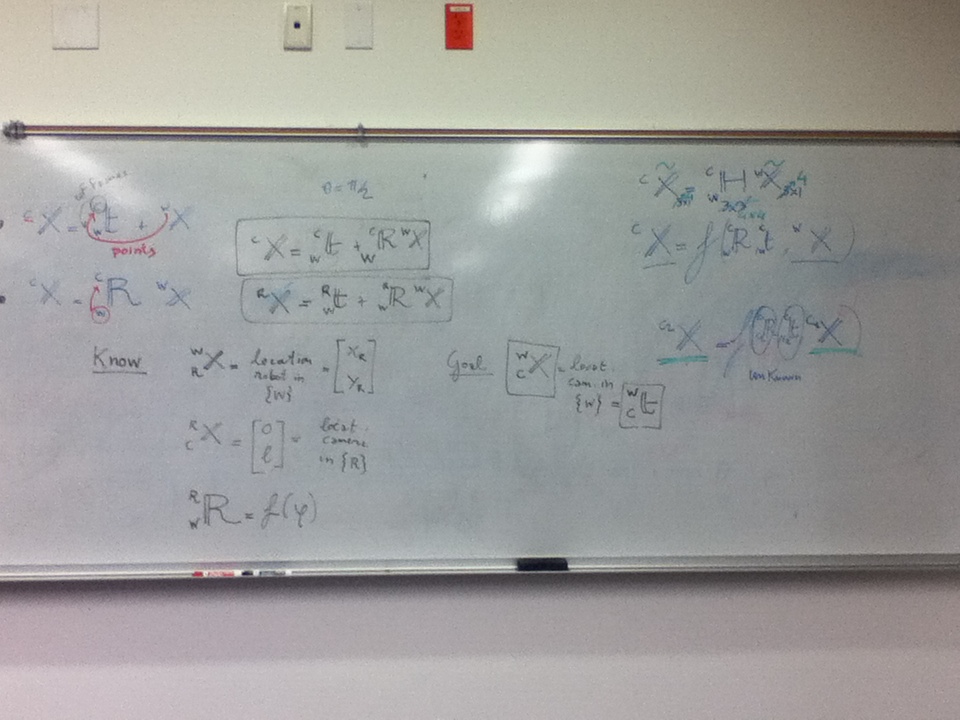 of frames
ᶜX = ᶜ_W t + ᵂX
points
ᶜX = ᶜ_W R ᵂX
θ = π/2
ᶜX = ᶜ_W t + ᶜ_W R ᵂX
ᴿX = ᴿ_W t + ᴿ_W R ᵂX
Know
ᵂ_R X = location robot in {W} = [X_R Y_R]
ᴿ_C X = [0 ℓ] = locat. camera in {R}
ᴿ_W R = f(φ)
Goal
ᵂ_C X = locat. cam. in {W} = ᵂ_C t
ᶜX̃ = ᶜ_W H ᵂX̃
4x4
ᶜX = f(ᶜ_W R, ᶜ_W t, ᵂX)
ᶜ²X = f(R, t, X)
unknown